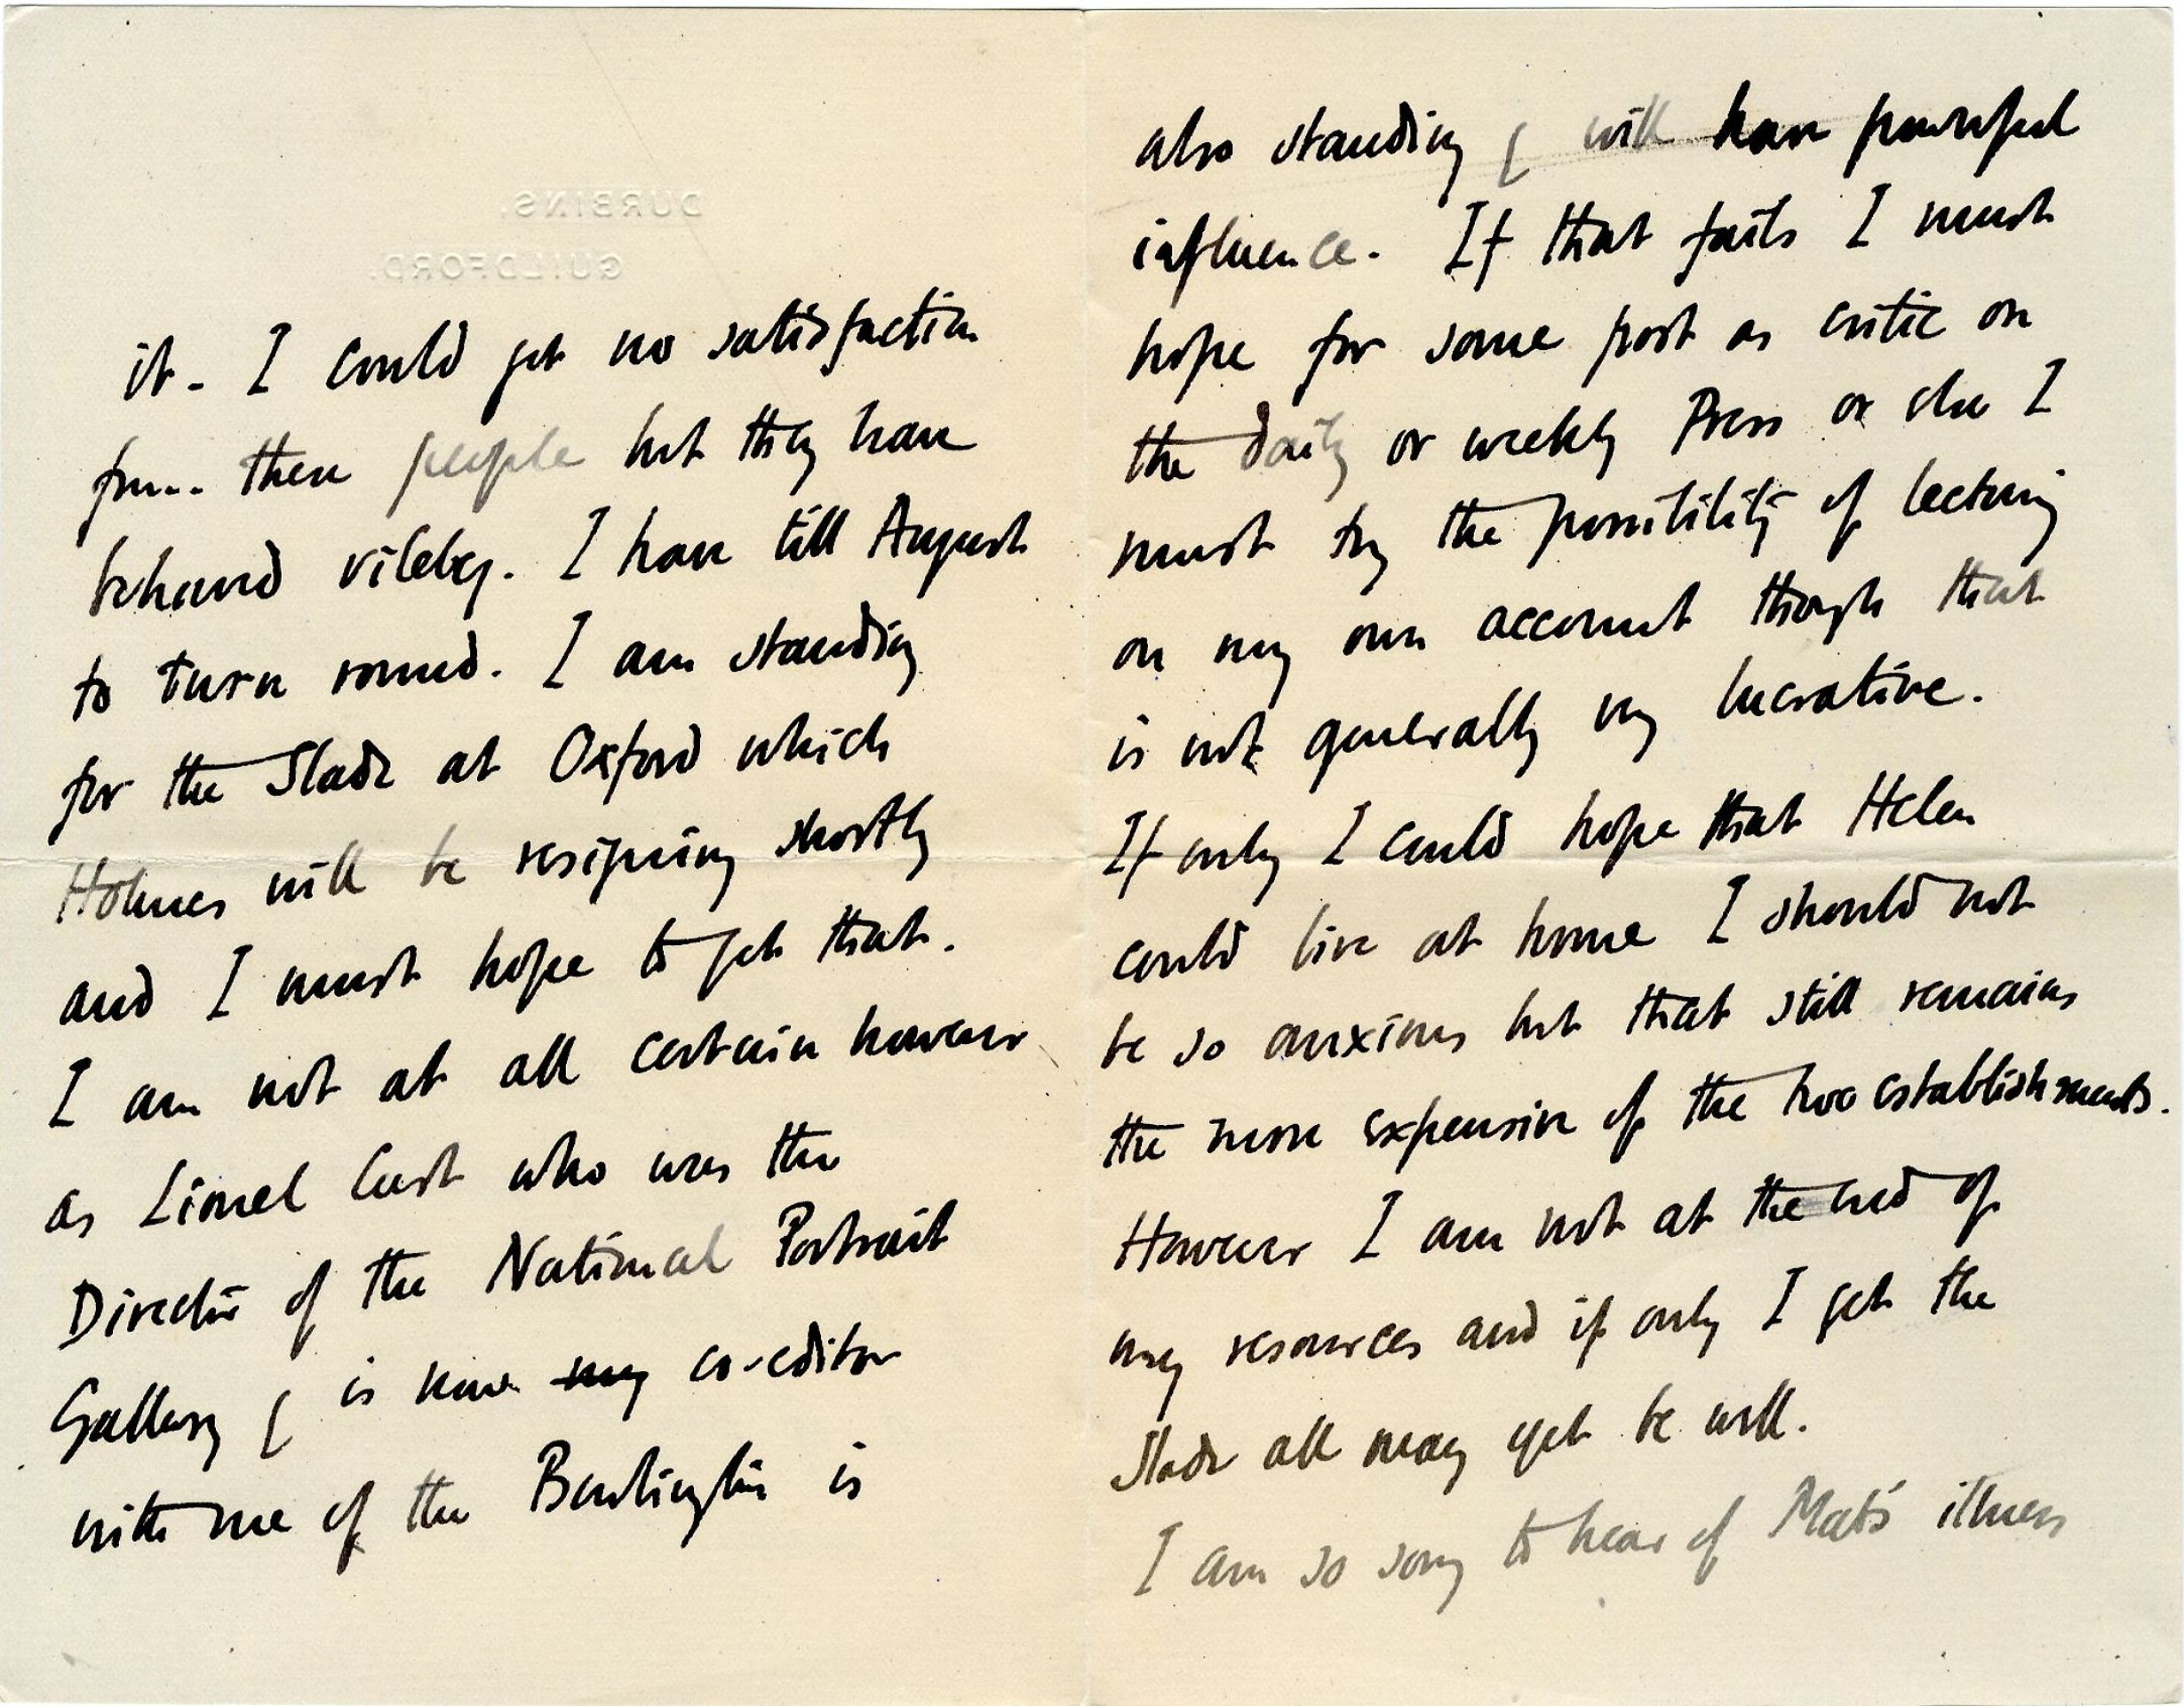 DURBINS,
GUILDFORD.
it - I could get no satisfaction
from these people but they have
behaved vilely. I have till August
to turn round. I am standing
for the Slade at Oxford which
Holmes will be resigning shortly
and I must hope to get that.
I am not at all certain however
as Lionel Cust who was the
Director of the National Portrait
Gallery & is now my co-editor
with me of the Burlington is
also standing & will have powerful
influence. If that fails I must
hope for some post as critic on
the daily or weekly Press or else I
must try the possibility of lecturing
on my own account though that
is not generally very lucrative.
If only I could hope that Helen
could live at home I should not
be so anxious but that still remains
the more expensive of the two establishments.
However I am not at the end of
my resources and if only I get the
Slade all may yet be well.
I am so sorry to hear of Mab's illness